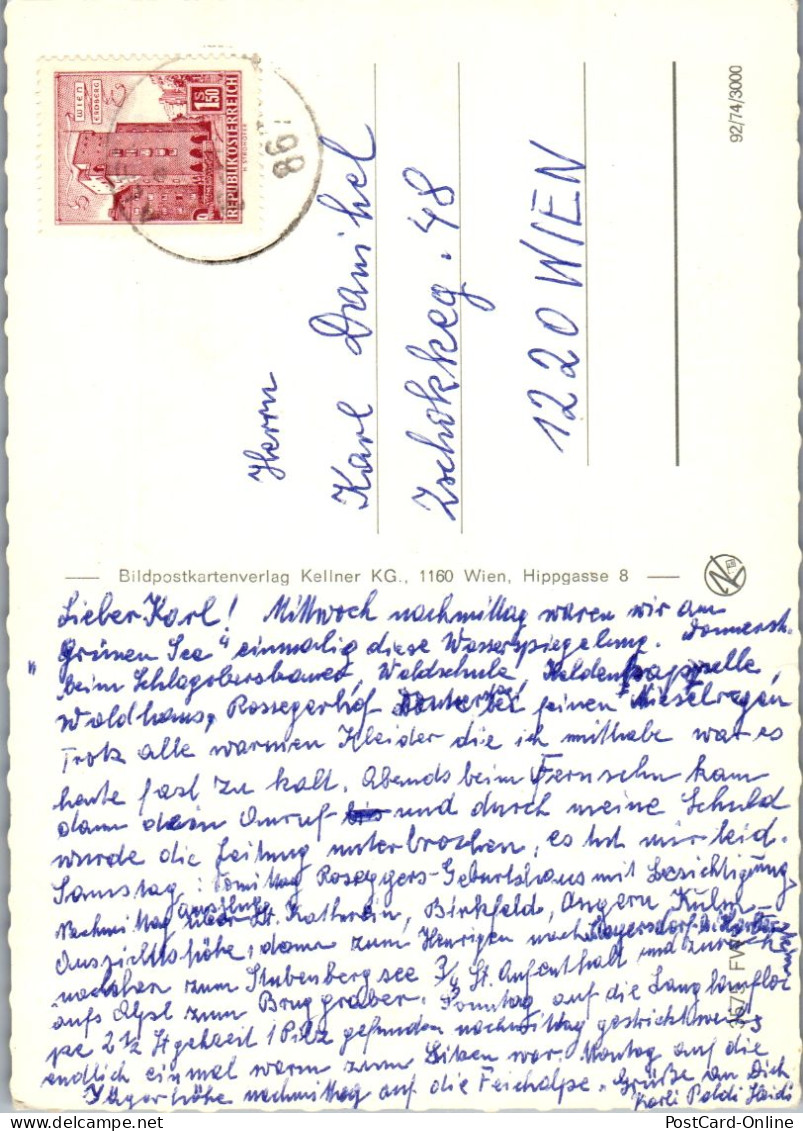 WIEN
ERDBERG
S 1.50
REPUBLIK ÖSTERREICH
H. STROHOFER
86
92/74/3000
Herrn
Karl Danihel
Zschokkeg. 48
1220 WIEN
Bildpostkartenverlag Kellner KG., 1160 Wien, Hippgasse 8
Lieber Karl! Mittwoch nachmittag waren wir am
"Grünen See" einmalig diese Wasserspiegelung. Donnerst.
beim Schlagobersbauer, Waldschule,
Waldhaus, Roseggerhof bei feinen Nieselregen
Trotz alle warmen Kleider die ich mithabe war es
heute fast zu kalt. Abends beim Fernsehn kam
dann dein Anruf und durch meine Schuld
wurde die Leitung unterbrochen, es tut mir leid.
Samstag: Vormittag Roseggers-Geburtshaus mit Besichtigung,
Nachmittag Ausflug St. Kathrein, Birkfeld, Angern, Kulm-
Aussichtshöhe, dann zum Heurigen nach
nachher zum Stubenbergsee 3/4 St. Aufenthalt und zurück
aufs Alpl zum Bruggraber. Sonntag auf die
2 1/2 St gehzeit 1 Pilz gefunden nachmittag gestrickt
endlich einmal warm zum Sitzen war. Montag auf die
höhe nachmittag auf die Grüße an Dich
Karli Poldi Heidi
PostCard-Online